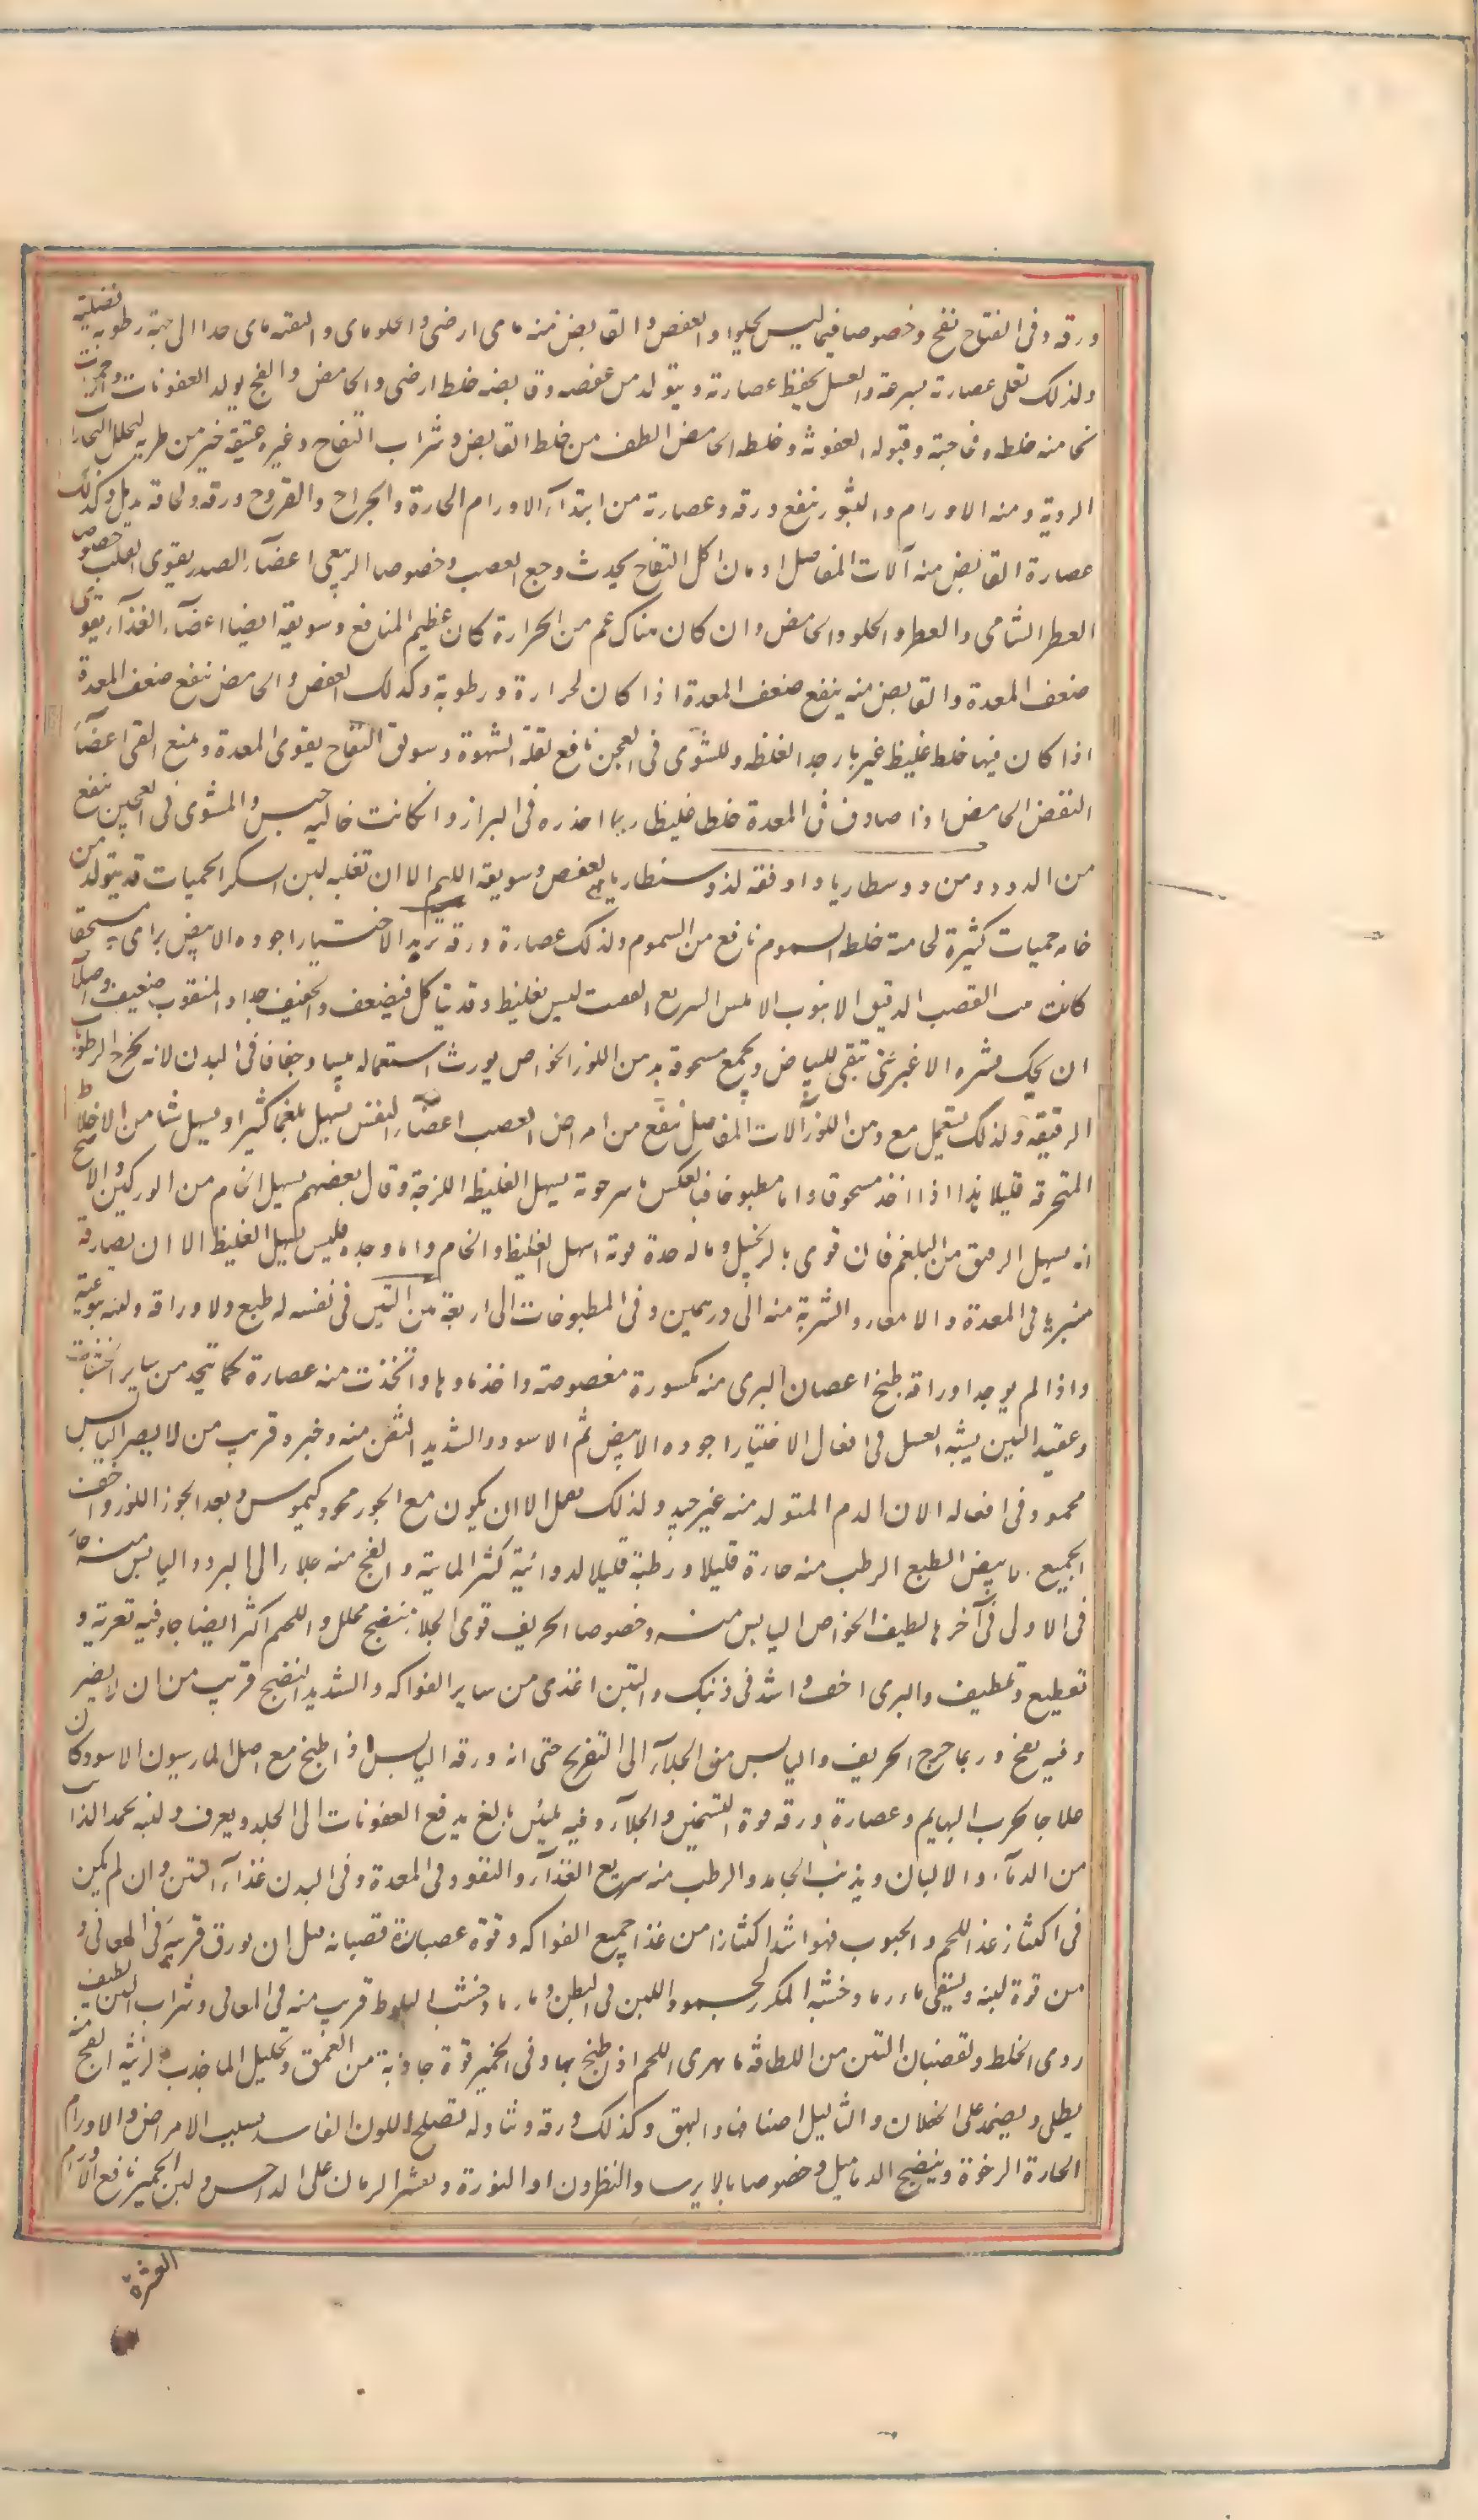 ورقه وفى التفاح نفخ وخصوصا فيما ليس بحلو والعفص والقابض منه مائى ارضى والحلو مائى والتفه مائى جدا الى جهة رطوبة فضلية
ولذلك تغلى عصارته بسرعة والعسل يحفظ عصارته ويتولد من عفصه وقابضه خلط ارضى والحامض والفج يولد العفونات وحميات
لخامته خلطه وفجاجته وقبوله العفونة وخلط الحامض الطف من خلط القابض وشراب التفاح وغيره عتيقه خير من طريه لتحلل البخارات
الردية ومنه الاورام والبثور ينفع ورقه وعصارته من ابتداء الاورام الحارة الجراح والقروح ورقه ولحاؤه يدمل وكذلك
عصارة القابض منه آلات المفاصل ادمان اكل التفاح يحدث وجع العصب وخصوصا الربيعى اعضاء الصدر يقوى القلب خصوصا
العطر الشامى والعطر والحلو والحامض وان كان هناك غم من الحرارة كان عظيم المنافع وسويقه ايضا اعضاء الغذاء يقوى
ضعف المعدة والقابض منه ينفع ضعف المعدة اذا كان لحرارة ورطوبة وكذلك العفص والحامض ينفع ضعف المعدة
اذا كان فيها خلط غليظ غير بارد جدا لغلظه وللشوى فى العجين نافع لقلة الشهوة وسويق التفاح يقوى المعدة ويمنع القى اعضاء
النفض الحامض اذا صادف فى المعدة خلطا غليظا ربما احدره فى البراز وانكانت خالية حبس والمشوى فى العجين ينفع
من الدود ومن دوسنطاريا واوفقه لذوسنطاريا العفص وسويقه اللهم الا ان تغلبه لبن السكر الحميات قد يتولد من
خامه حميات كثيرة لخامة خلطه السموم نافع من السموم ولذلك عصارة ورقه تربد الاختيار اجوده الابيض
كانت من القصب الدقيق الانبوب الاملس السريع التفتت ليس بغليظ وقد يتاكل فيضعف والخفيف جدا والمثقوب ضعيف واصلاحه
ان يحك قشره الاغبر حتى تبقى البياض ويجمع مسحوقه بدهن اللوز الخواص يورث استعماله يبسا وجفافا فى البدن لانه يخرج الرطوبات
الرقيقة ولذلك يستعمل مع دهن اللوز آلات المفاصل نفع من امراض العصب اعضاء النفض يسهل بلغما كثيرا ويسهل شيئا من الاخلاط
المتحرقة قليلا هذا اذا اخذ مسحوقا واما مطبوخا فبالعكس يسهل الغليظ اللزجة وقال بعضهم يسهل الخام من الوركين والاصح
انه يسهل الرقيق من البلغم فان قوى بالزنجبيل وماله حدة قوته اسهل الغليظ والخام واما وحده فليس يسهل الغليظ الا ان يصادفه
متبريا فى المعدة والامعاء والشربة منه الى درهمين وفى المطبوخات الى اربعة تين التين فى نفسه له طبع ولاوراقه ولبنه يتوعية
واذا لم يوجد اوراقه طبخ اغصان البرى منه مكسورة واخذ ماوها واتخذت منه عصارة كما يتخذ من ساير الخشبيات
وعقيد التين يشبه العسل فى افعاله الاختيار اجوده الابيض ثم الاسود والشديد النضج منه خيره وقريب من لا يضر اليابس
محمود فى افعاله الا ان الدم المتولد منه غير جيد ولذلك يقمل الا ان يكون مع الجوز محمود كيموس وبعد الجوز اللوز واخف
الجميع الابيض الطبع الرطب منه حارة قليلا ورطبة قليلا لدوائية كثير المائية والفج منه جلاء الى البرد واليابس منه حار
فى الاولى فى آخرها لطيف الخواص اليابس منه وخصوصا الحريف قوى الجلاء منضج محلل واللحم اكثر انضاجا وفيه تغرية و
تقطيع وتلطيف والبرى احد واشد فى ذنيك والتين اغذى من ساير الفواكه والشديد النضج قريب من ان لا يضر
وفيه نفخ وربما خرج الحريف واليابس من الجلاء الى التقريح حتى ان ورقه اليابس اذا طبخ مع اصل المازريون الاسود كان
علاجا لجرب البهايم وعصارة ورقه قوة التسخين والجلاء وفيه تليين بالغ يدفع العفونات الى الجلد ويعرق ولبنه يجمد الذائب
من الدماء والالبان ويذيب الجامد والرطب منه سريع الغذاء والنفوذ فى المعدة وفى البدن غذاء التين وان لم يكن
فى اكتناز غذا اللحم والحبوب فهو اشد اكتنازا من غذا جميع الفواكه وقوة عصارة قضبانه قبل ان يورق قريبة فى المعانى و
من قوة لبنه ويسقى ماء رماد خشبه المكرر لجمود اللبن فى البطن وماء رماد خشب البلوط قريب منه فى المعانى وشراب التين لطيف
ردى الخلط ولقضبان التين من اللطافة ما يهرى اللحم اذا طبخ بها وفى الجميز قوة جاذبة من العمق وتحليل لما جذب الزينة الفج منه
يطلى ويضمد على الخيلان والثاليل اصنافها والبهق وكذلك ورقه وتناوله يصلح اللون الفاسد بسبب الامراض الاورام
الحارة الرخوة وينضج الدماميل وخصوصا بالايرسا والنطرون او النورة وبقشر الرمان على الداحس ولبن الجميز نافع الاورام
العشرة